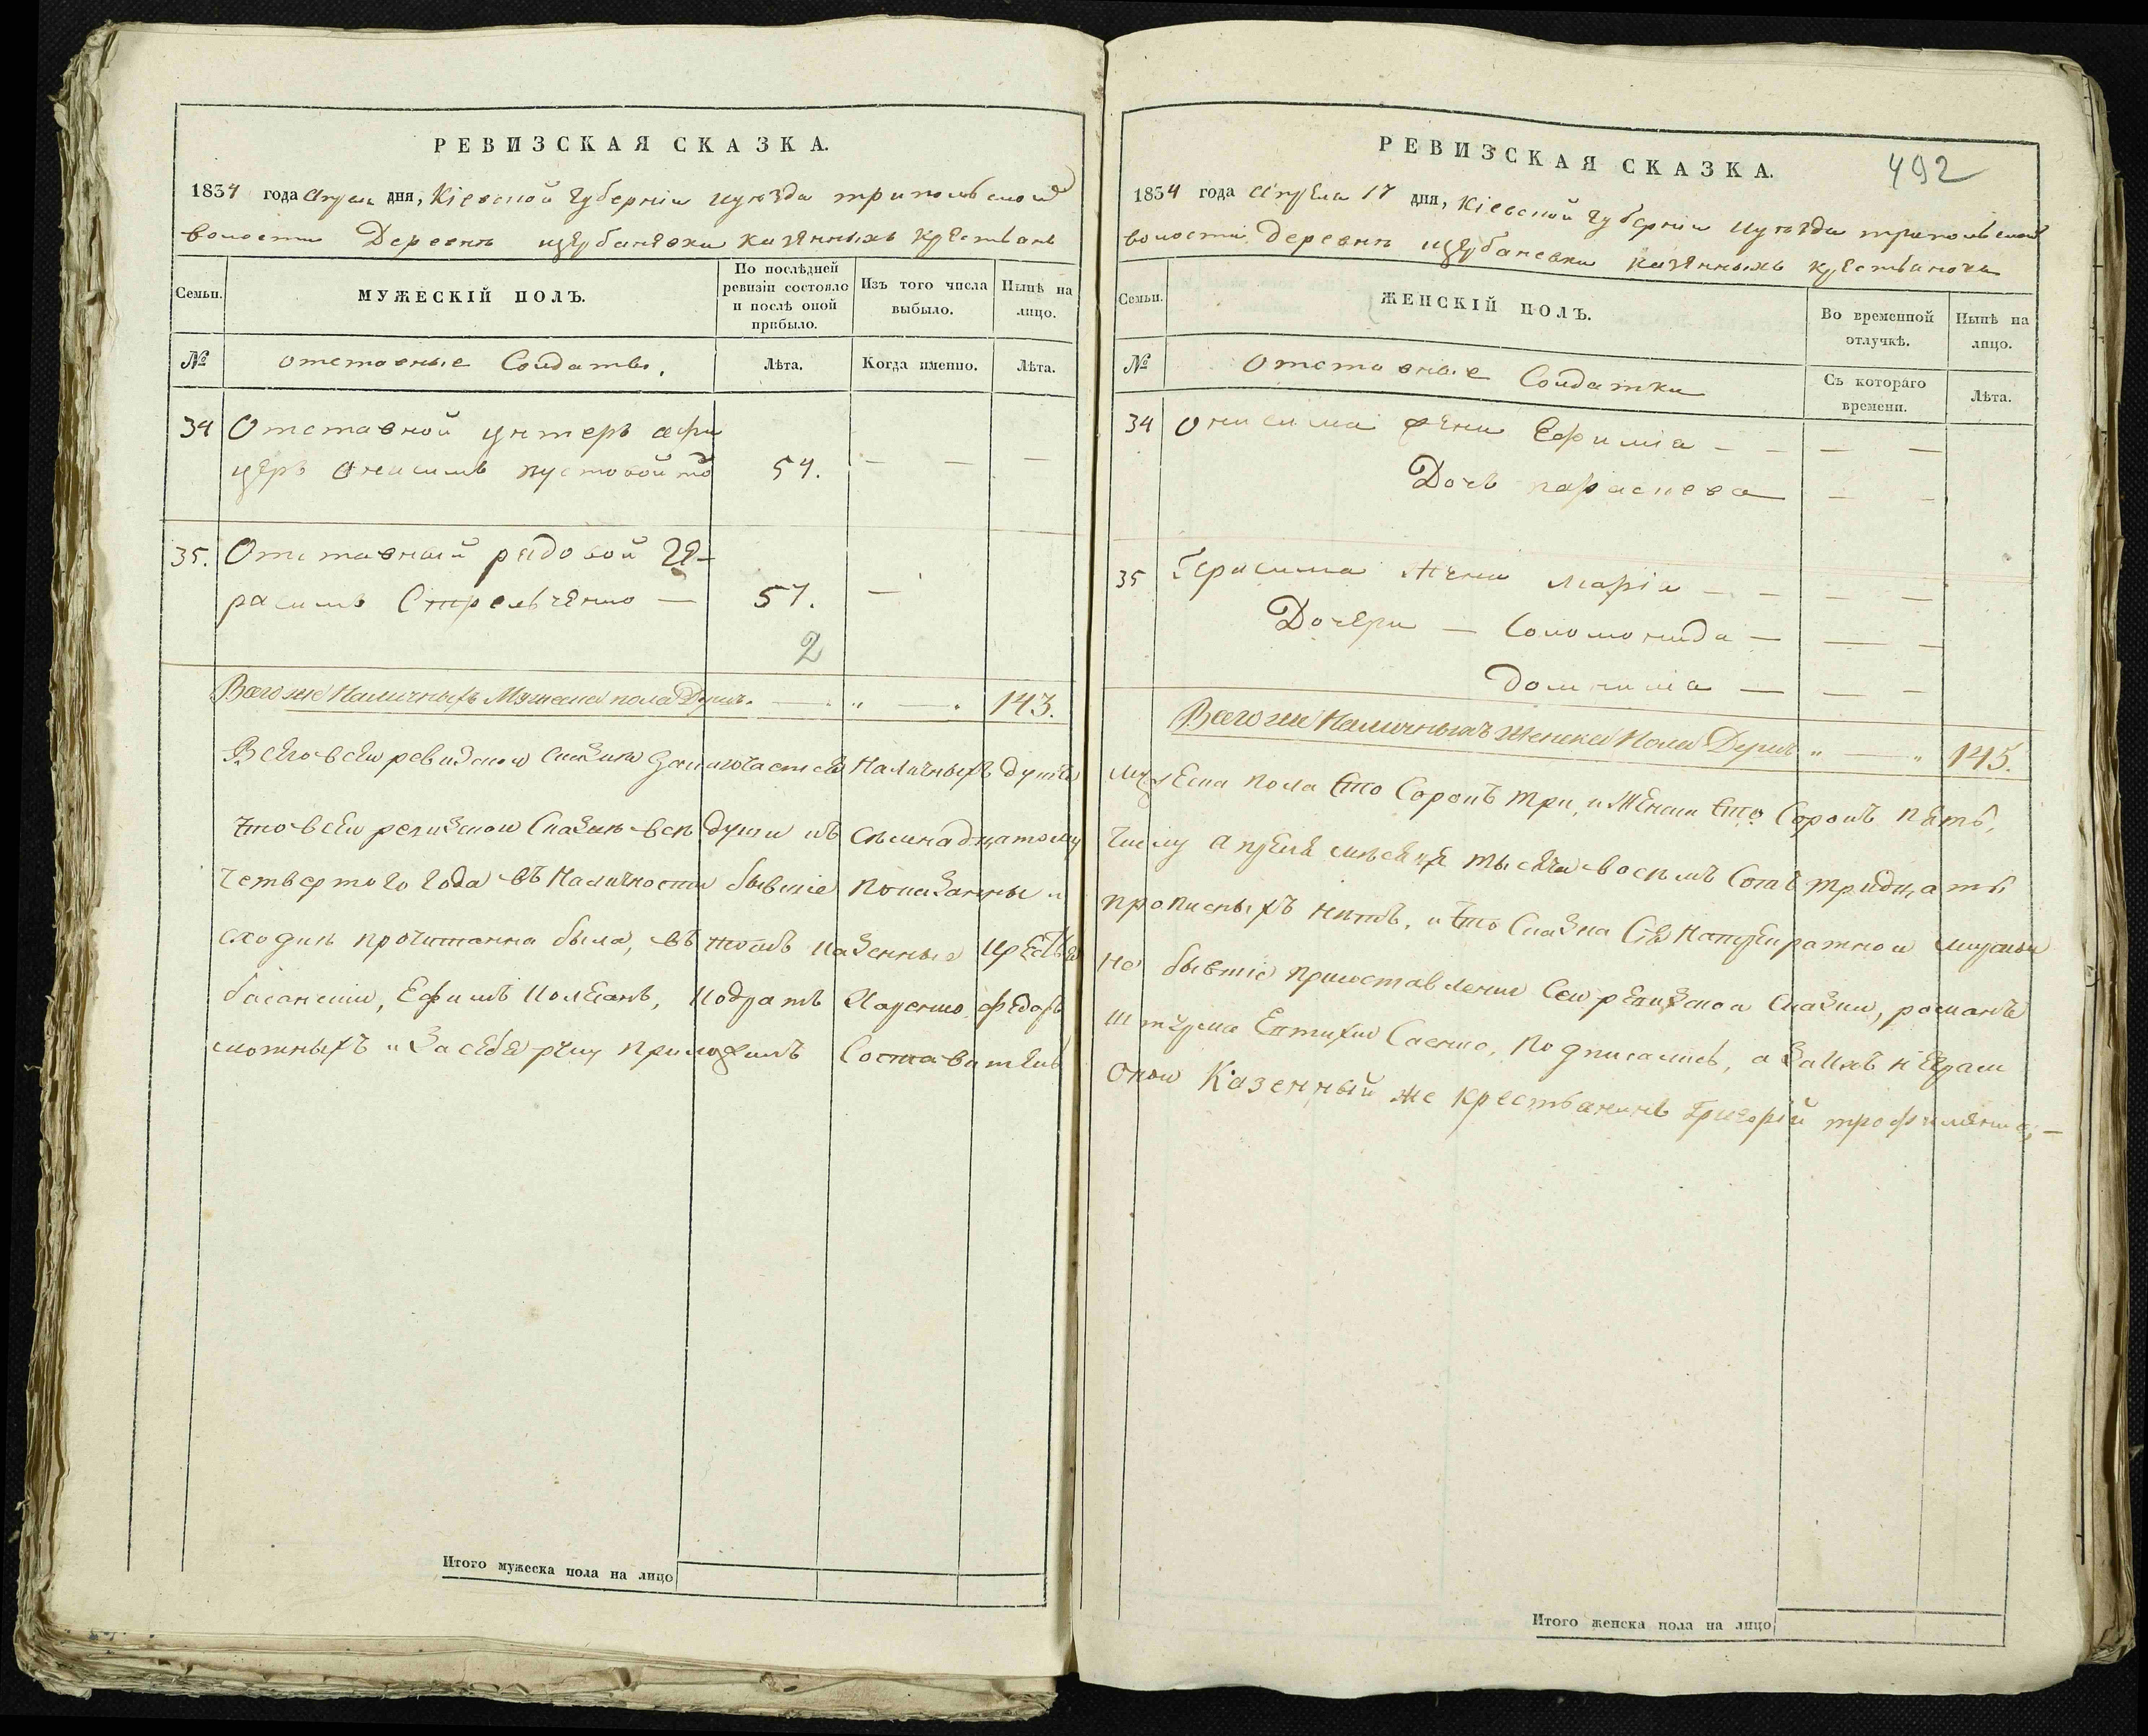 РЕВИЗСКАЯ СКАЗКА.
1834 года Апреля дня, Кіевской губерніи и уѣзда трипольской
волости Деревнѣ щербаневки казенныхъ крестьянъ
Семьи.
МУЖЕСКІЙ ПОЛЪ.
По послѣдней ревизіи состояло и послѣ оной прибыло.
Изъ того числа выбыло.
Нынѣ на лицо.
№
отставные Солдаты.
Лѣта.
Когда именно.
Лѣта.
34 Отставной унтеръ афи
церъ Онисимъ пустовойтъ 54.
35. Отставный рядовой Ге-
расимъ Стрельченко — 57.
2
Всего же Наличныхъ Мужеска пола Душъ. 143.
Всего в сей ревизской сказки Наличныхъ душъ
что в сей ревизской Сказки всѣ души къ семнадцатому
четвертого года въ Наличности бывшіе показанны и
сходкѣ прочитанна была, въ томъ казенные
Ефимъ Кодратъ Федоръ
и За себя руку приложилъ Составитель
Итого мужеска пола на лицо
РЕВИЗСКАЯ СКАЗКА.
492
1834 года Апреля 17 дня, Кіевской губерніи и уѣзда трипольской
волости деревнѣ щербаневки казенныхъ крестьянокъ
Семьи.
ЖЕНСКІЙ ПОЛЪ.
Во временной отлучкѣ.
Нынѣ на лицо.
№
Отставные Солдатки
Съ котораго времени.
Лѣта.
34 Онисима жена Ефиміа
Дочь параскева
35 Герасима Жена Маріа
Дочери — Соломонида —
Домникіа —
Всего же Наличныхъ Женска Пола Душъ 145.
мужеска пола сто Сорокъ три, и Женски сто Сорокъ пять,
числу апреля месяця тысяча восемъ Сотъ тридцать
прописныхъ нитъ, и что Сказка Сія на мирской
не бывшіе при составлении Сей ревизской сказки, романъ
Евтихий Саенко, Подписались, а За ихъ
оной Казенный же крестьянинъ Григорій трофименко, —
Итого женска пола на лицо